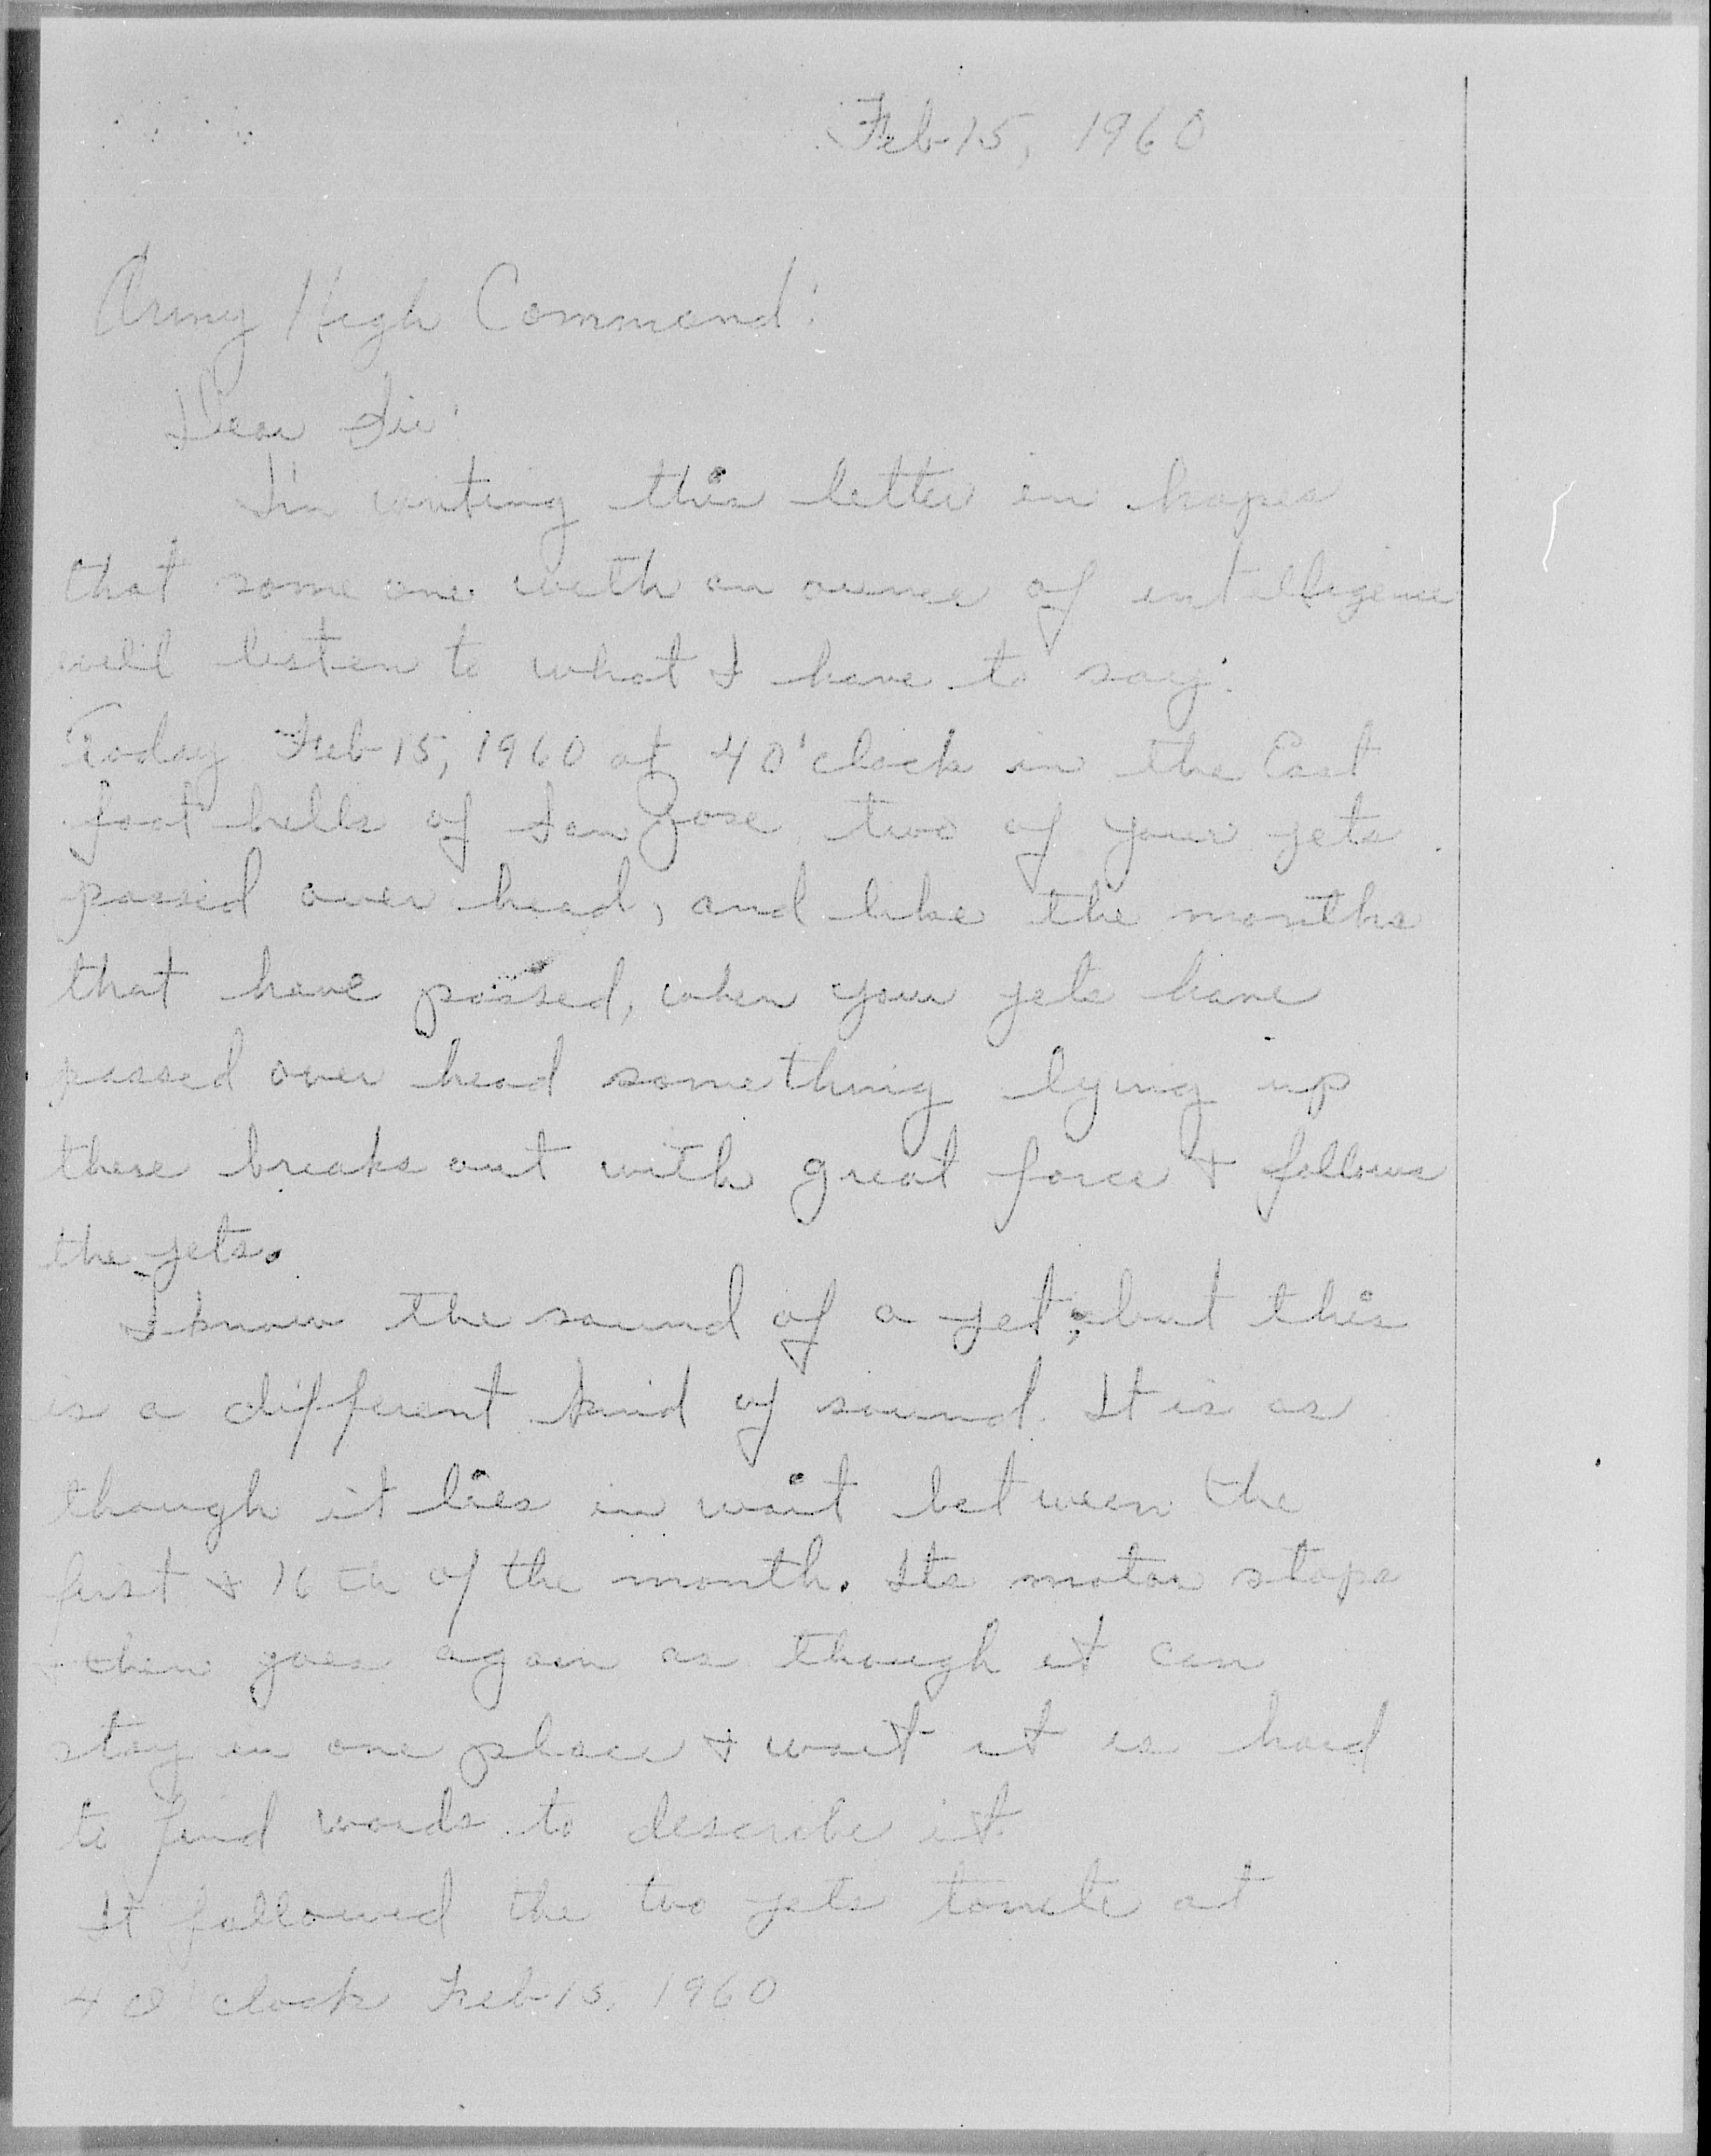 Feb 15, 1960
Army High Command:
Dear Sir:
I'm writing this letter in hopes
that some one with an ounce of intelligence
will listen to what I have to say.
Today Feb 15, 1960 at 4 O'clock in the East
foot hills of San Jose, two of your jets
passed over head, and like the months
that have passed, when your jets have
passed over head something lying up
there breaks out with great force & follows
the jets.
I know the sound of a jet, but this
is a different kind of sound. It is as
though it lies in wait between the
first & 16th of the month. Its motor stops
& then goes again as though it can
stay in one place & wait it is hard
to find words to describe it
It followed the two jets tonite at
4 O'clock Feb 15, 1960